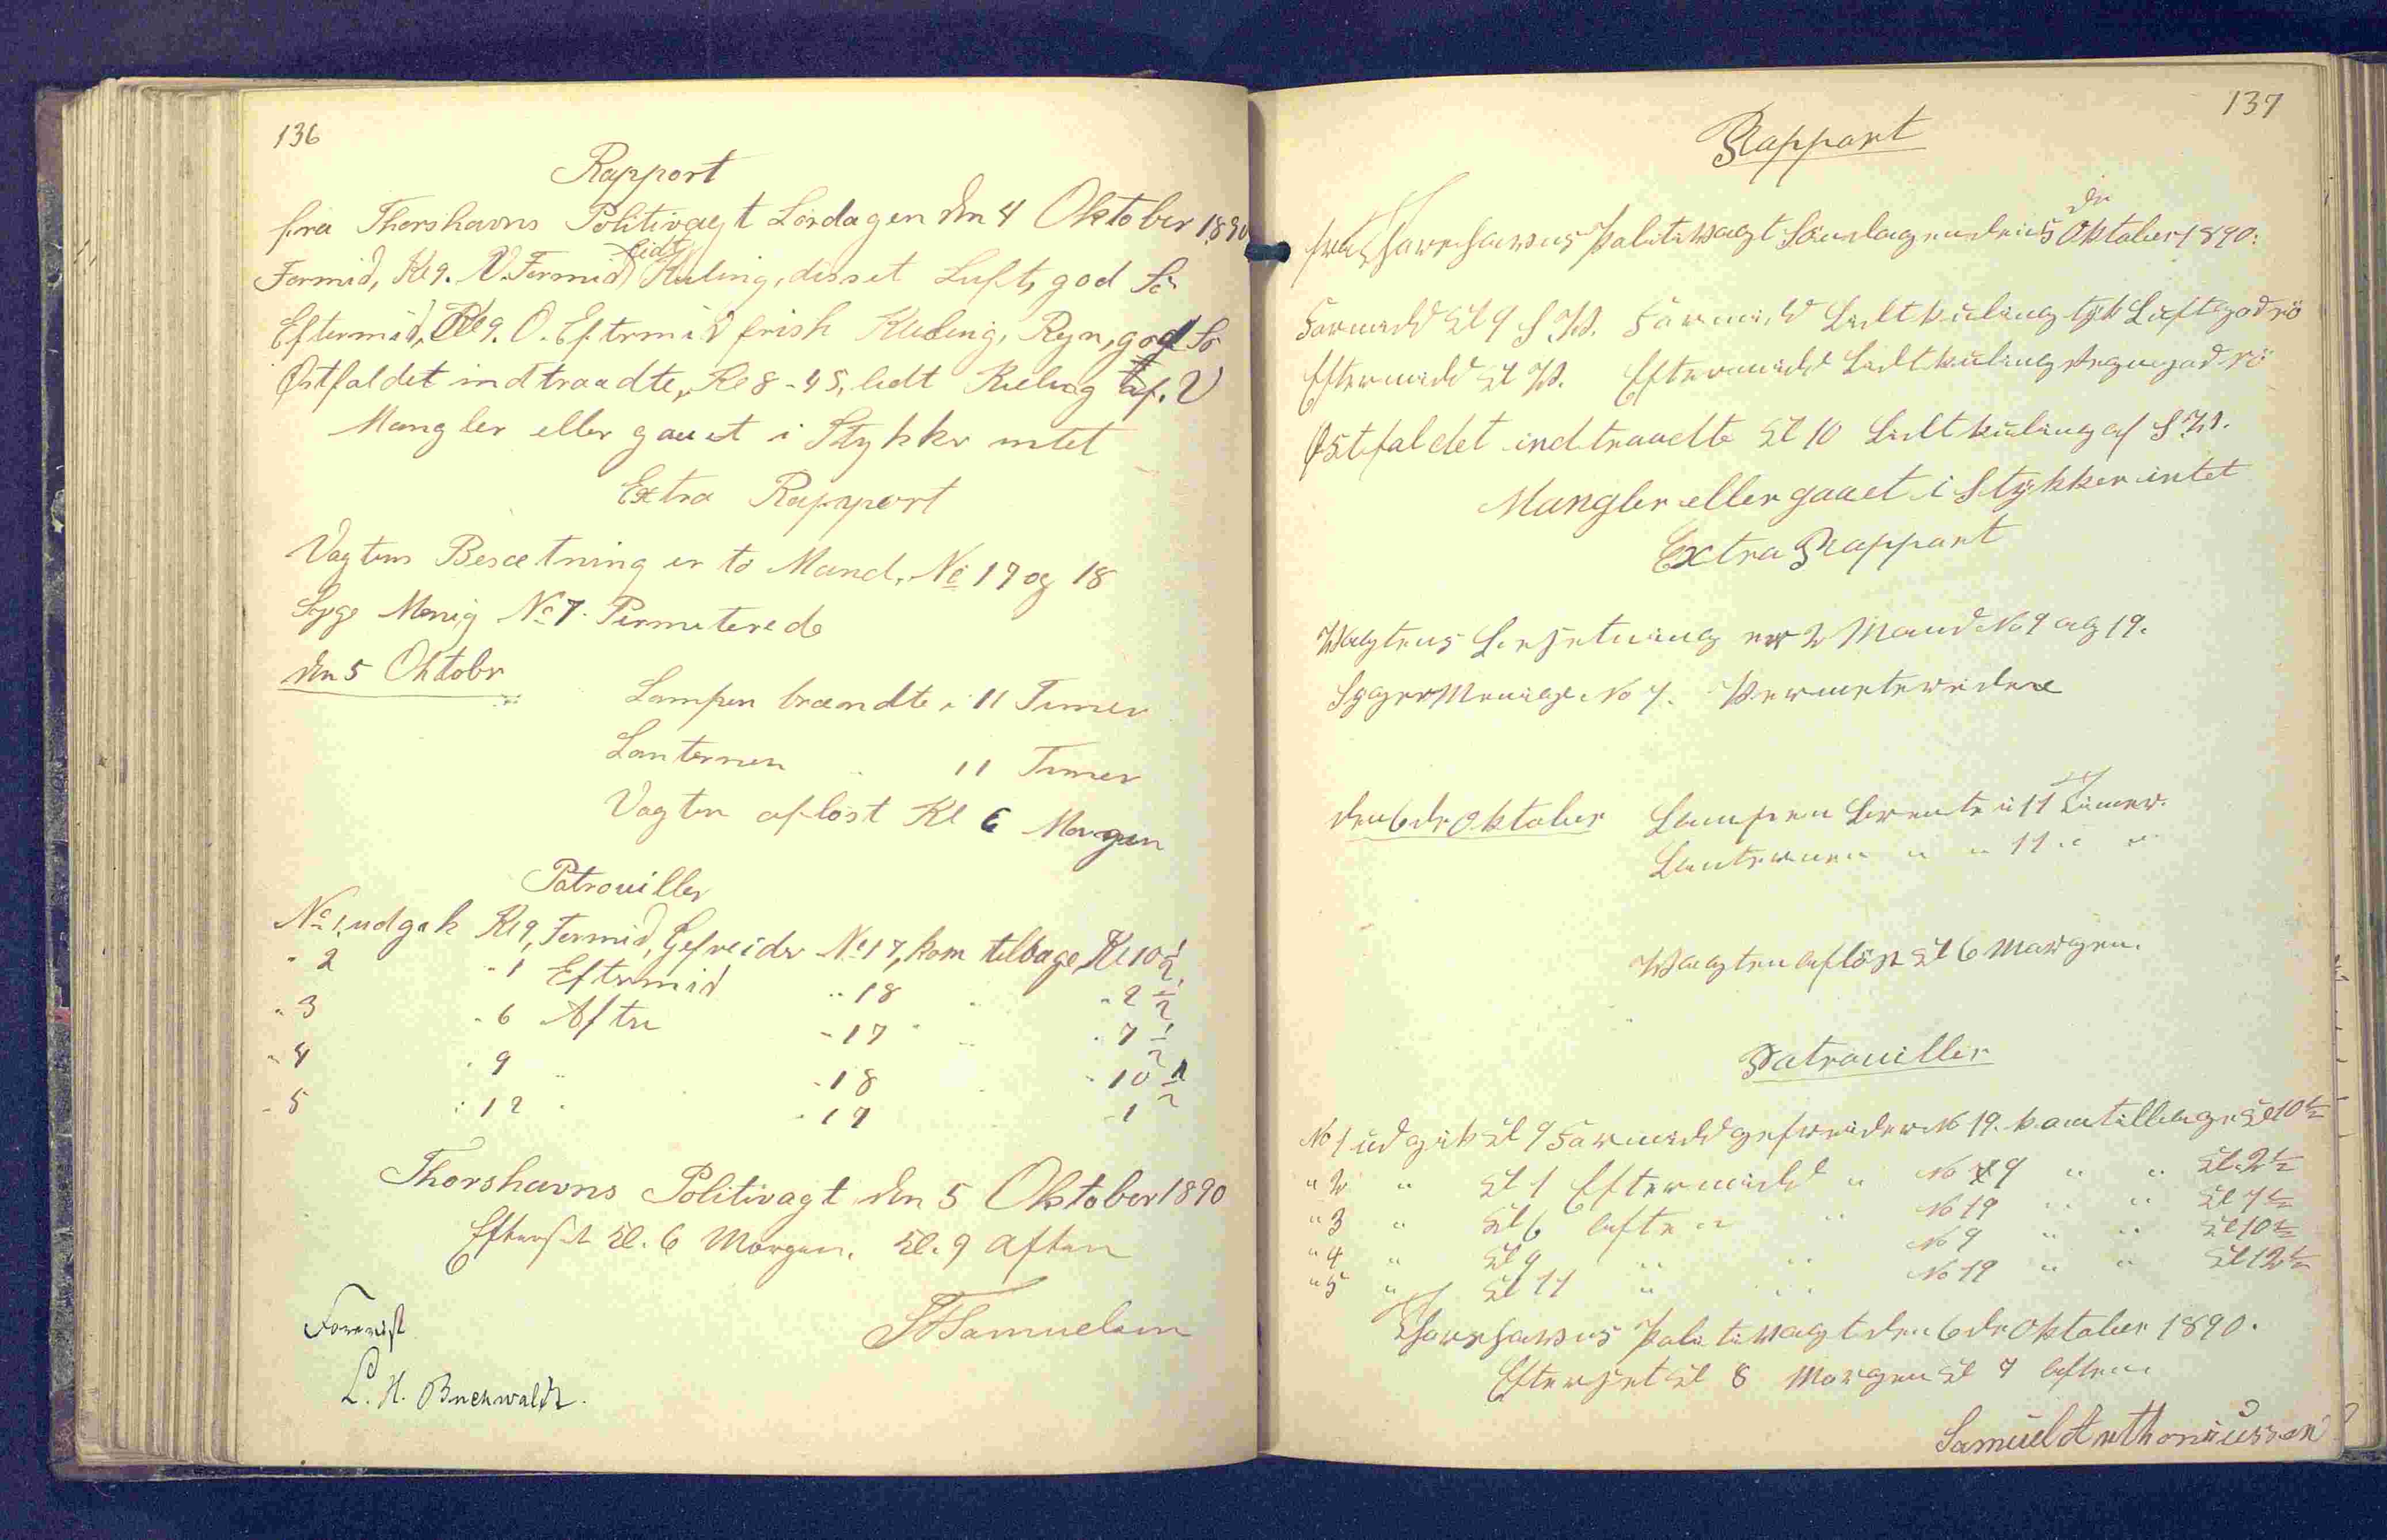 136
Rapport
fra Thorshavns Politivagt Lördagen den 4 Oktober 1890
Formid, Kl 9. V. Formid lidt Kuling, disset Luft, god Sö
Eftermid, Kl 9. O. Eftrmid frisk Kuling, Regn, god Sö
Østfaldet indtraadte, Kl 8-45, lidt Kuling af. V
Mangler eller gaaet i Stykker intet
Extra Rapport
Vagtens Besætning er to Mand, No 17 og 18
Syge Menig No 7. Permiterede
den 5 Oktobr
Lampen brændte i 11 Timer
Lanternen " 11 Timer
Vagten aflöst Kl 6 Morgen
Patrouiller
No 1, udgik Kl 9, Formid, Gefreider No 17, kom tilbage, Kl 10 1/2
" 2 " 1 Eftermid " 18 " " 2 1/2
" 3 " 6 Aften " 17 " " 7 1/2
" 4 " 9 " " 18 " " 10 1/2
" 5 " 12 " " 17 " 1
Thorshavns Politivagt den 5 Oktober 1890
Efterset Kl. 6 Morgen. Kl. 9 Aften
Forevist
L. H. Buchwaldt.
Samuelsen
137
Rapport
fra Thorshavns Politivagt Söndagen den 5 de Oktober 1890.
Formidd Kl 9 S.W. Formidd Lidt kuling tyk Luft god sö
Eftermidd Kl W. Eftermidd Lidt kuling Regn god sö
Østfaldet indtraadte Kl 10 Lidt kuling af S.W.
Mangler eller gaaet i Stykker intet
Extra Rapport
Wagtens Besetning er 2 Mand No 9 og 19.
Syger Menige No 7. Permeteredere
den 6 de Oktober Lampen brente i 11 Timer.
Lanternen " " 11 " "
Wagten aflöst Kl 6 Morgen.
Patrouiller
No 1 udgik Kl 9 Formidd gefreider No 19. kom tillbage Kl 10 1/2
" 2 " Kl 1 Eftermidd " No 9 " " Kl. 2 1/2
" 3 " Kl 6 aften " No 19 " " Kl 7 1/2
" 4 " Kl 9 " " No 9 " " Kl 10 1/2
" 5 " Kl 11 " " No 19 " " Kl 12 1/2
Thorshavns Politivagt den 6 de Oktober 1890.
Efterset Kl 8 Morgen Kl 7 aften
Samuel Anthoniussen